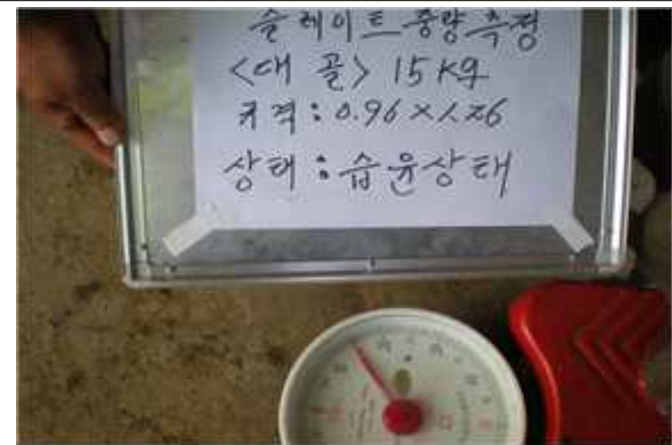 슬레이트 중량측정
<대 골> 15 Kg
규격 : 0.96 ×
상태 : 습윤상태